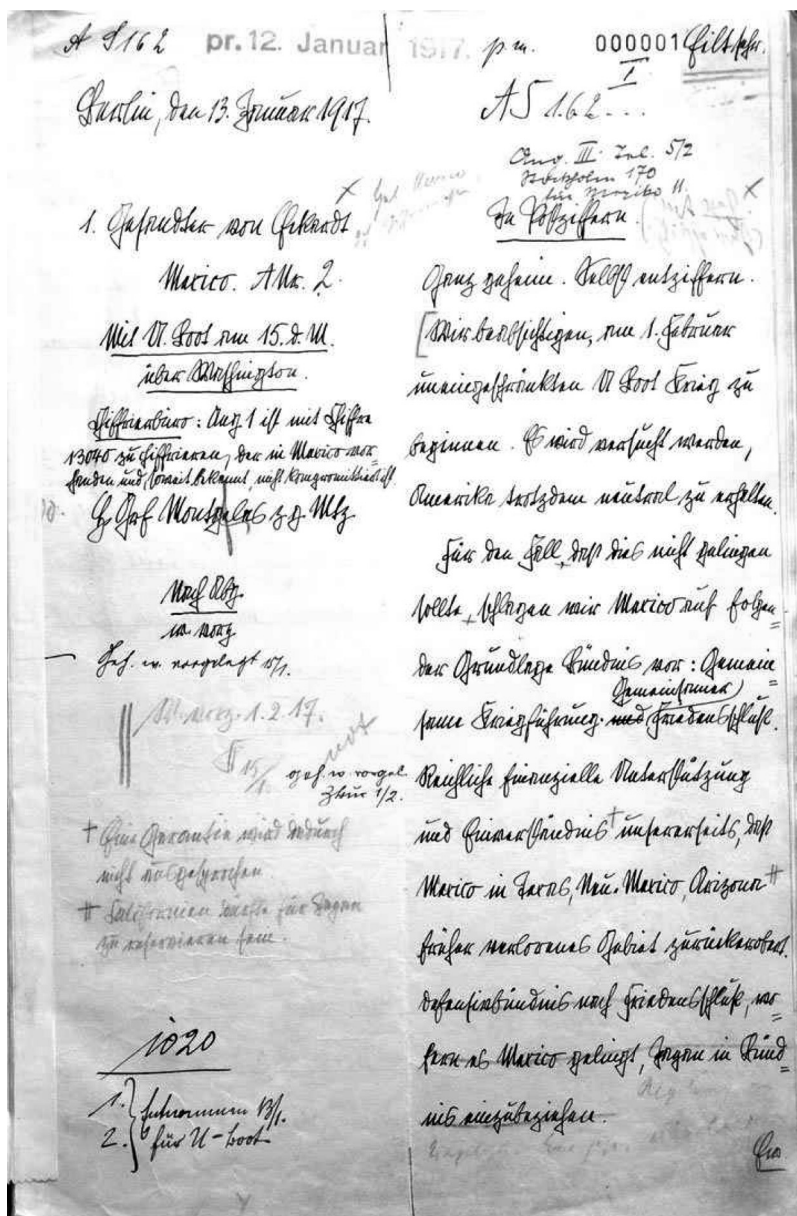 A S 162 pr. 12. Januar 1917. p.m. 000001 Eilt sehr.
Berlin, den 13. Januar 1917.
1. Gesandter von Eckardt
Mexico. A Nr. 2.
Mit U. Boot am 15. d. M.
über Washington.
Chiffrierbüro: Ang 1 ist mit Chiffre
13040 zu chiffrieren, der in Mexico vor-
handen und soweit bekannt, nicht kompromittiert ist.
Graf Montgelas z. g. Mtz
Nach Abg.
w. vorg.
Geh. w. vorgelegt
W. vorg. 1.2.17.
geh. w. vorgel.
1/2.
† Eine Garantie wird dadurch
nicht ausgesprochen.
ǂ Californien dürfte für Japan
zu reservieren sein.
1020
1. } Entnommen 13/1.
2. } für U-Boot
I
A S 162...
Ang. III. Tel. 5/2
Stockholm 170
für Mexiko 11.
In Postziffern.
Ganz geheim. Selbst entziffern.
[Wir beabsichtigen, am 1. Februar
uneingeschränkten U Boot Krieg zu
beginnen. Es wird versucht werden,
Amerika trotzdem neutral zu erhalten.
Für den Fall, daß dies nicht gelingen
sollte, schlagen wir Mexico auf folgen=
der Grundlage Bündnis vor: Gemein=
Gemeinsamer
same Kriegführung. und Friedensschluß.
Reichliche finanzielle Unterstützung
und Einverständnis † unsererseits, daß
Mexico in Texas, Neu-Mexico, Arizona ǂ
früher verlorenes Gebiet zurückerobert.
Defensivbündnis nach Friedensschluß, wo=
fern es Mexico gelingt, Japan in Bünd=
nis einzubeziehen.
Eu.